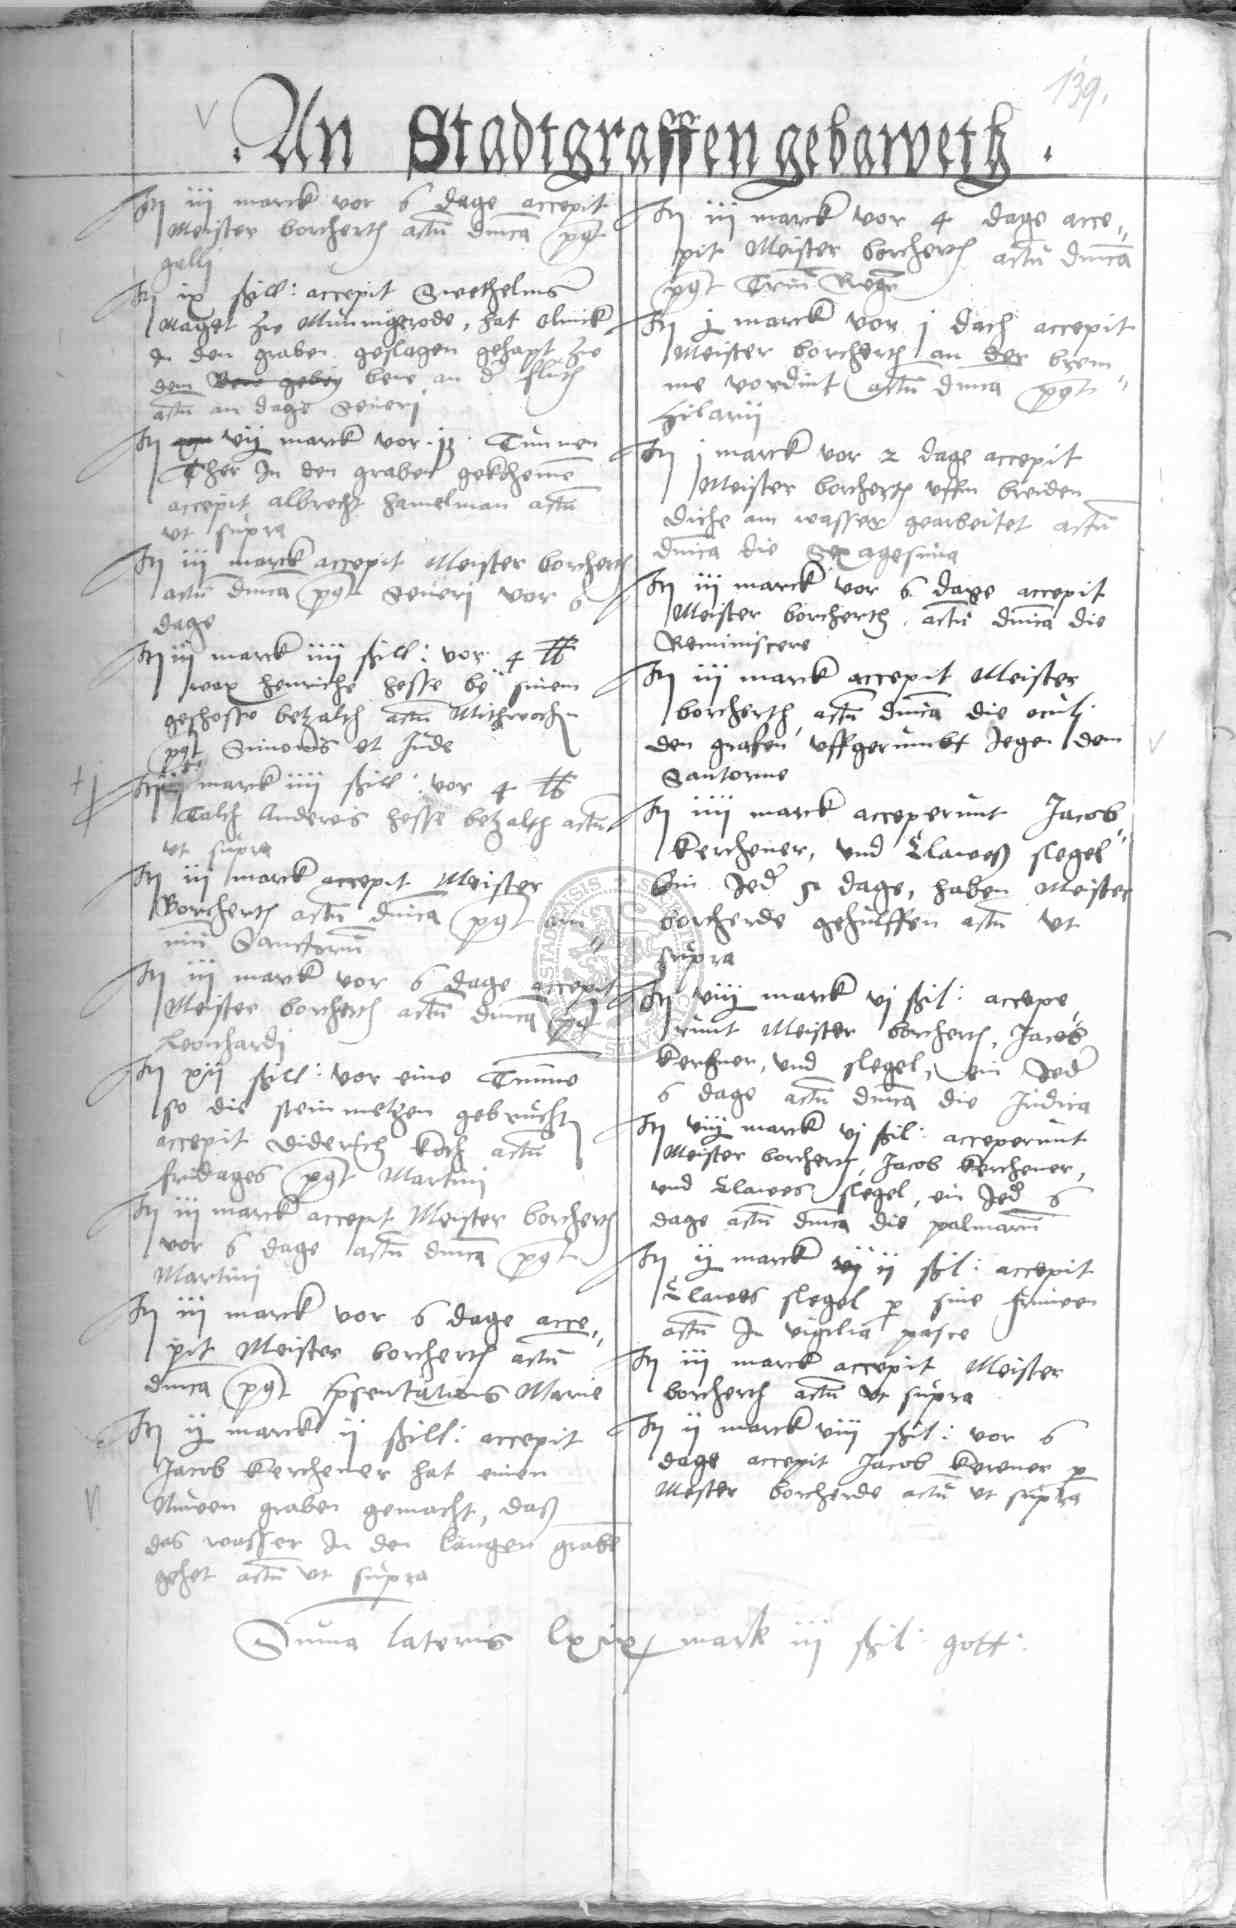 139.
An Stadtgraffen gebaweth.
It iij marck vor 6 dage accepit
Meister borcherth actū dnīca pgt
galli
It ix ßill: accepit Swethelms
Maget zw Minnigerode, hat
In den graben geslagen gehapt zw
dem an d' fluth
actū am dage Seueri
It vij marck vor Tunnen
Ther In den graben gekhomē
accepit albrecht hamelman actū
vt supra
It iij marck accepit Meister borcherth
actū dnīca pgt Seueri vor 6
dage
It iij marck iiij ßill: vor 4 ℔
wax henriche hesse be sinem
geschosse betzalth actū Mithwochn
pgt Simonis et Jude
It marck iiij ßill: vor 4 ℔
Talch Anderes hesse betzalth actū
vt supra
It iij marck accepit Meister
Borcherth actū dnīca pgt om
niū Sanctorū
It iij marck vor 6 dage accepit
Meister borcherth actū dnīca pgt
Leonhardj
It xij ßill: vor eine Tunne
so die steinmetzen gebrucht
accepit Diderich koch actū
fridages pgt Martini
It iij marck accepit Meister borcherth
vor 6 dage actū dnīca pgt
Martini
It iij marck vor 6 dage acce„
pit Meister borcherth actū
dnīca pgt psentationis Marie
It ij marck ij ßill: accepit
Jacob kerchener hat einen
Nuwen graben gemacht, daß
das wasser In den langen grabē
gehet actū vt supra
It iij marck vor 4 dage acce„
pit Meister borcherth actū dnīca
pgt Triū Regū
It j marck vor j dach accepit
Meister borcherth an der brem
me vordint actū dnīca pgt
Hilarij
It j marck vor 2 dage accepit
Meister borcherth vffm breiden
diche am wasser gearbeitet actū
dnīca die Sexagesima
It iij marck vor 6 dage accepit
Meister borcherth actū dnīca die
Reminiscere
It iij marck accepit Meister
borcherth actū dnīca die oculi
den grafen vffgerumbt Jegen dem
Santorme
It iiij marck acceperunt Jacob
kerchener, vnd Clawes slegel
Ein Jed' 5 dage, haben Meister
borcherde gehulffen actū vt
supra
It viij marck vj ßil: accepe„
runt Meister borcherth, Jacob
kerchner, vnd slegel, ein Jed'
6 dage actū dnīca die Judica
It viij marck vj ßil: acceperunt
Meister borcherth, Jacob kerchener,
vnd Clawes slegel, ein Jed' 6
dage actū dnīca die palmarū
It ij marck ij ßil: accepit
Clawes slegel p sine fruwen
actū In vigilia pasce
It iij marck accepit Meister
borcherth actū vt supra
It ij marck viij ßil: vor 6
dage accepit Jacob kerener p
Mester borcherde actū vt supra
Suma lateris lxix mark iij ßil: gott: